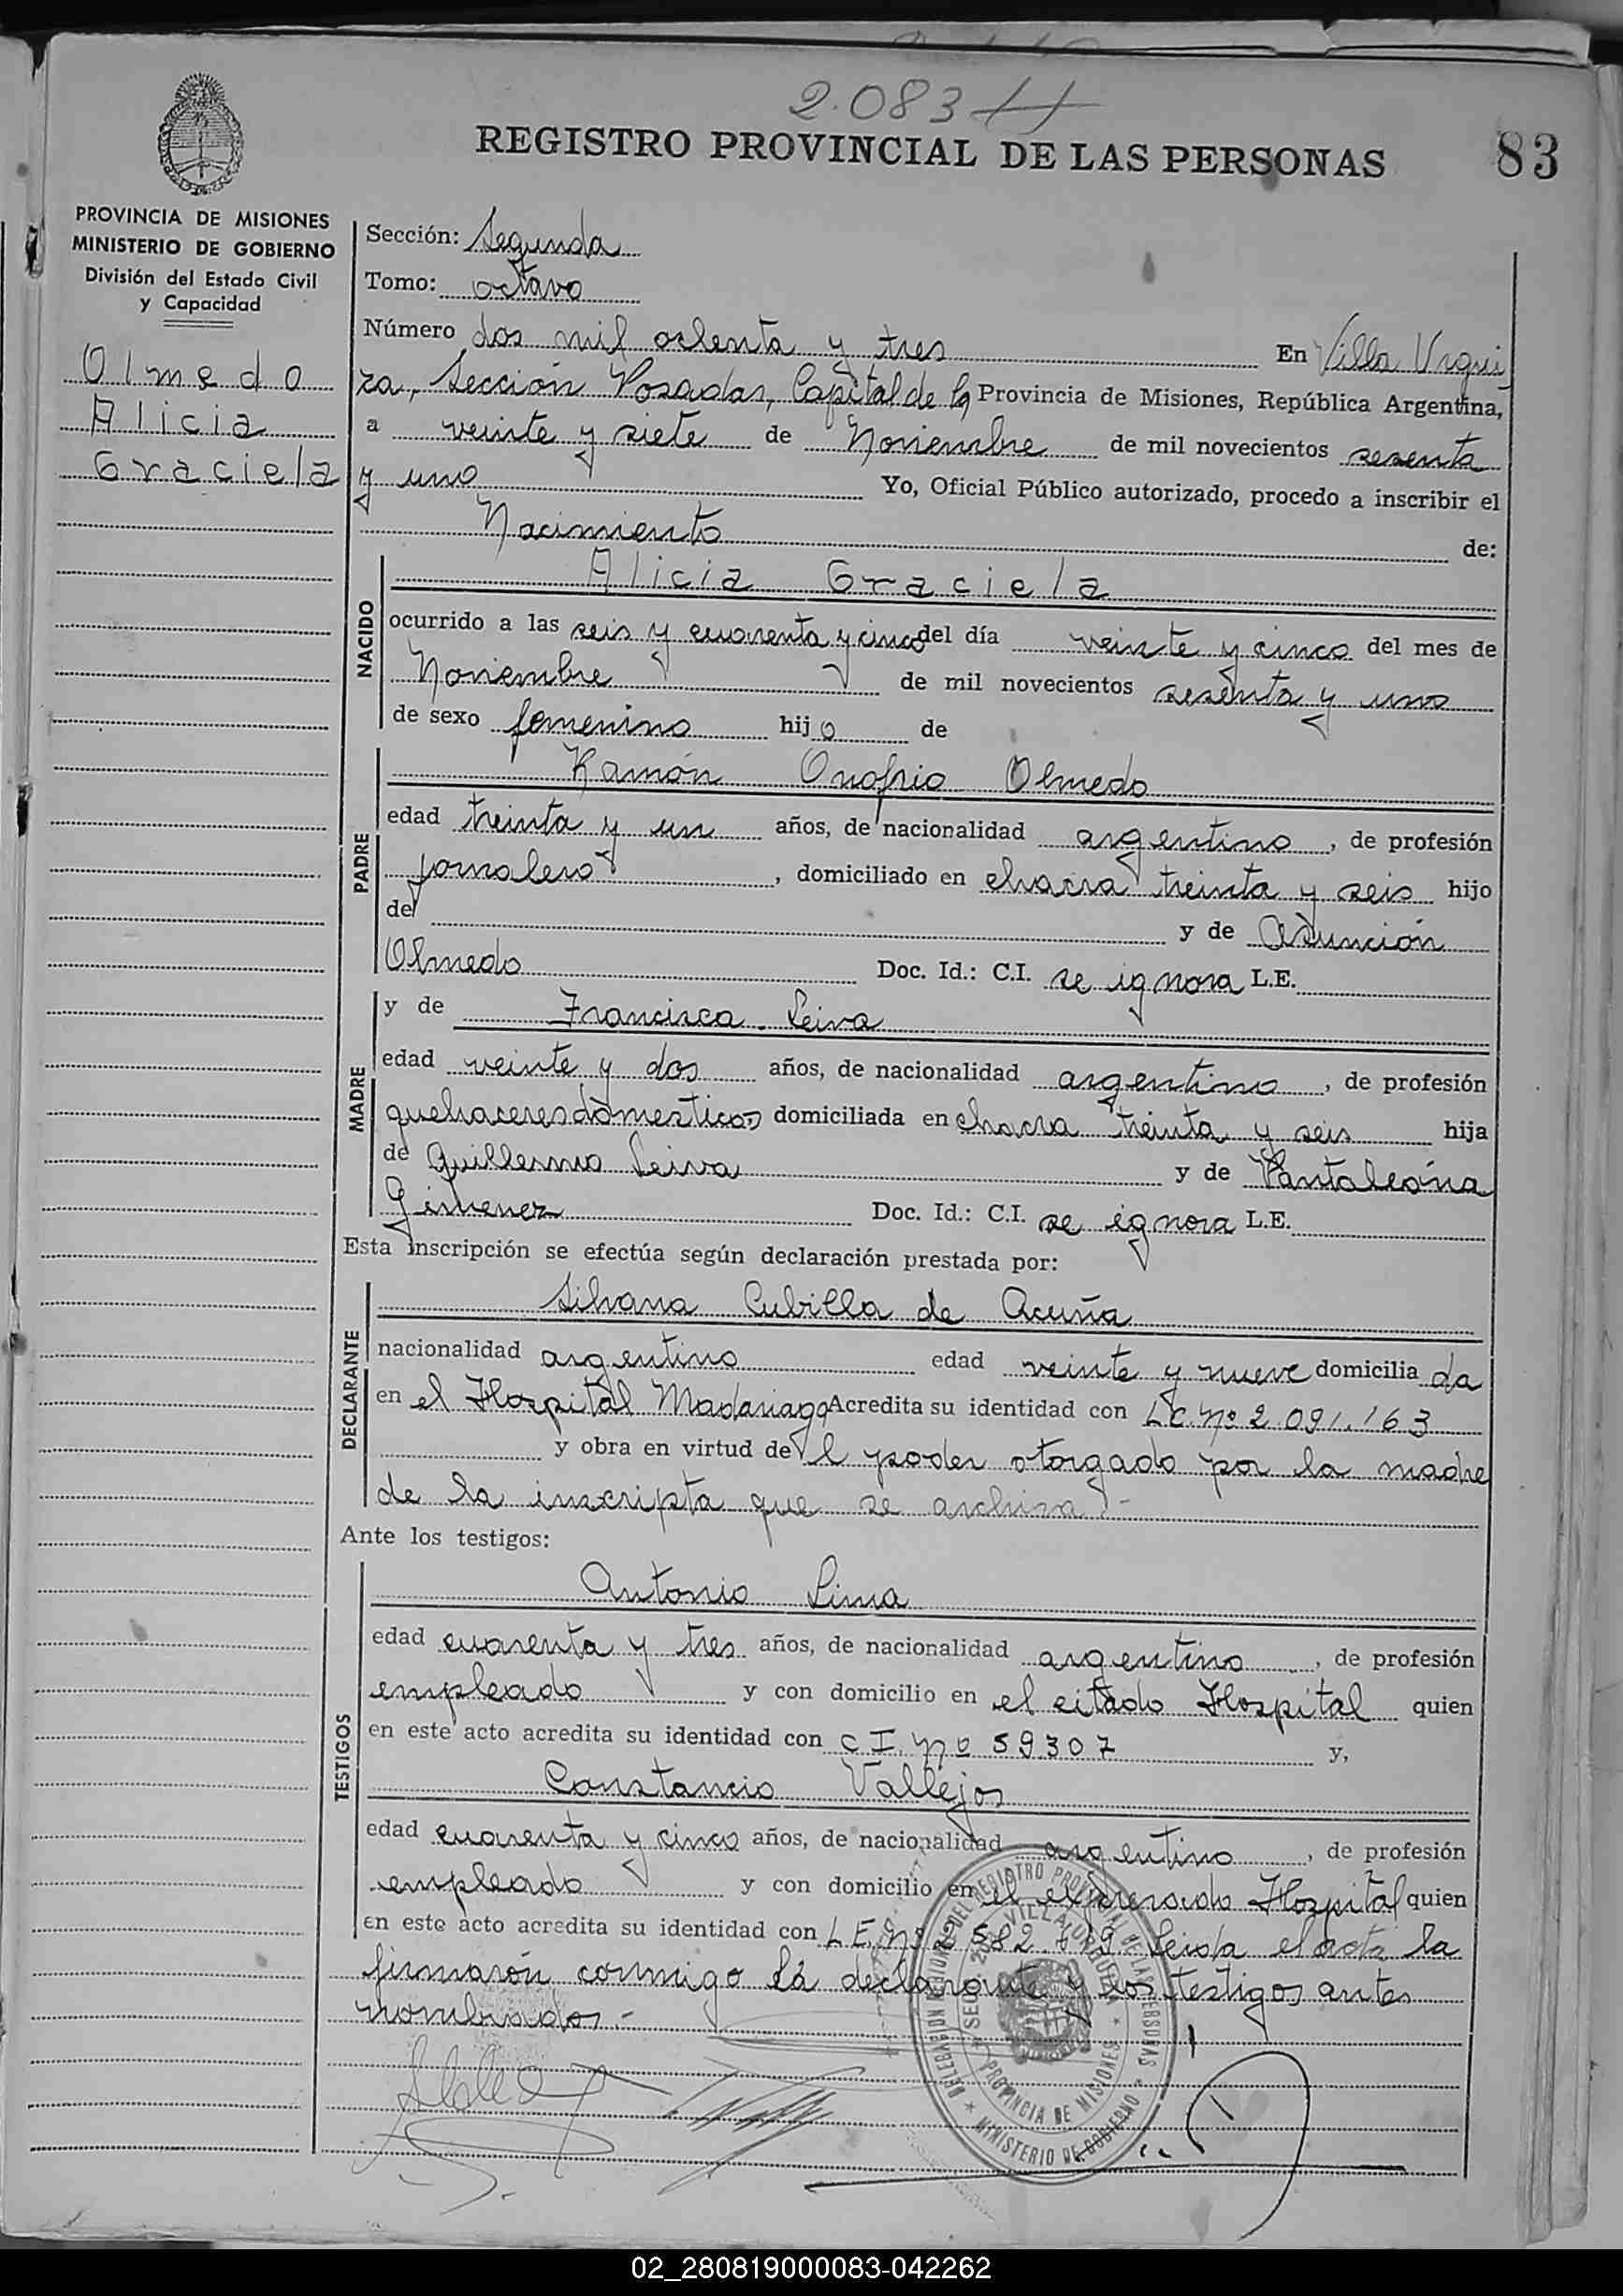 2.083
REGISTRO PROVINCIAL DE LAS PERSONAS 83
PROVINCIA DE MISIONES
MINISTERIO DE GOBIERNO
División del Estado Civil
y Capacidad
Olmedo
Alicia
Graciela
Sección: Segunda
Tomo: octavo
Número dos mil ochenta y tres En Villa Urqui
za, Sección Posadas, Capital de la Provincia de Misiones, República Argentina,
a veinte y siete de Noviembre de mil novecientos sesenta
y uno Yo, Oficial Público autorizado, procedo a inscribir el
Nacimiento de:
NACIDO
Alicia Graciela
ocurrido a las seis y cuarenta y cinco del día veinte y cinco del mes de
Noviembre de mil novecientos sesenta y uno
de sexo femenino hijo de
PADRE
Ramón Onofrio Olmedo
edad treinta y un años, de nacionalidad argentino, de profesión
jornalero, domiciliado en chacra treinta y seis hijo
de y de Asunción
Olmedo Doc. Id.: C.I. se ignora L.E.
MADRE
y de Francisca Leiva
edad veinte y dos años, de nacionalidad argentina, de profesión
quehaceres domesticos domiciliada en chacra treinta y seis hija
de Guillermo Leiva y de Pantaleona
Gimenez Doc. Id.: C.I. se ignora L.E.
Esta inscripción se efectúa según declaración prestada por:
DECLARANTE
Silvana Cubilla de Acuña
nacionalidad argentina edad veinte y nueve domicilia da
en el Hospital Madariaga Acredita su identidad con L.C. Nº 2.091.163
y obra en virtud del poder otorgado por la madre
de la inscripta que se archiva.-
Ante los testigos:
TESTIGOS
Antonio Lima
edad cuarenta y tres años, de nacionalidad argentino, de profesión
empleado y con domicilio en el citado Hospital quien
en este acto acredita su identidad con C I. Nº 59307 y,
Constancio Vallejos
edad cuarenta y cinco años, de nacionalidad argentino, de profesión
empleado y con domicilio en el expresado Hospital quien
en este acto acredita su identidad con L E. Nº 2 582 Leida el acta la
firmaron conmigo la declarante y los testigos antes
nombrados.-
DELEGACION DEL REGISTRO PROVINCIAL DE LAS PERSONAS
VILLA URQUIZA
PROVINCIA DE MISIONES
MINISTERIO DE GOBIERNO
02_280819000083-042262